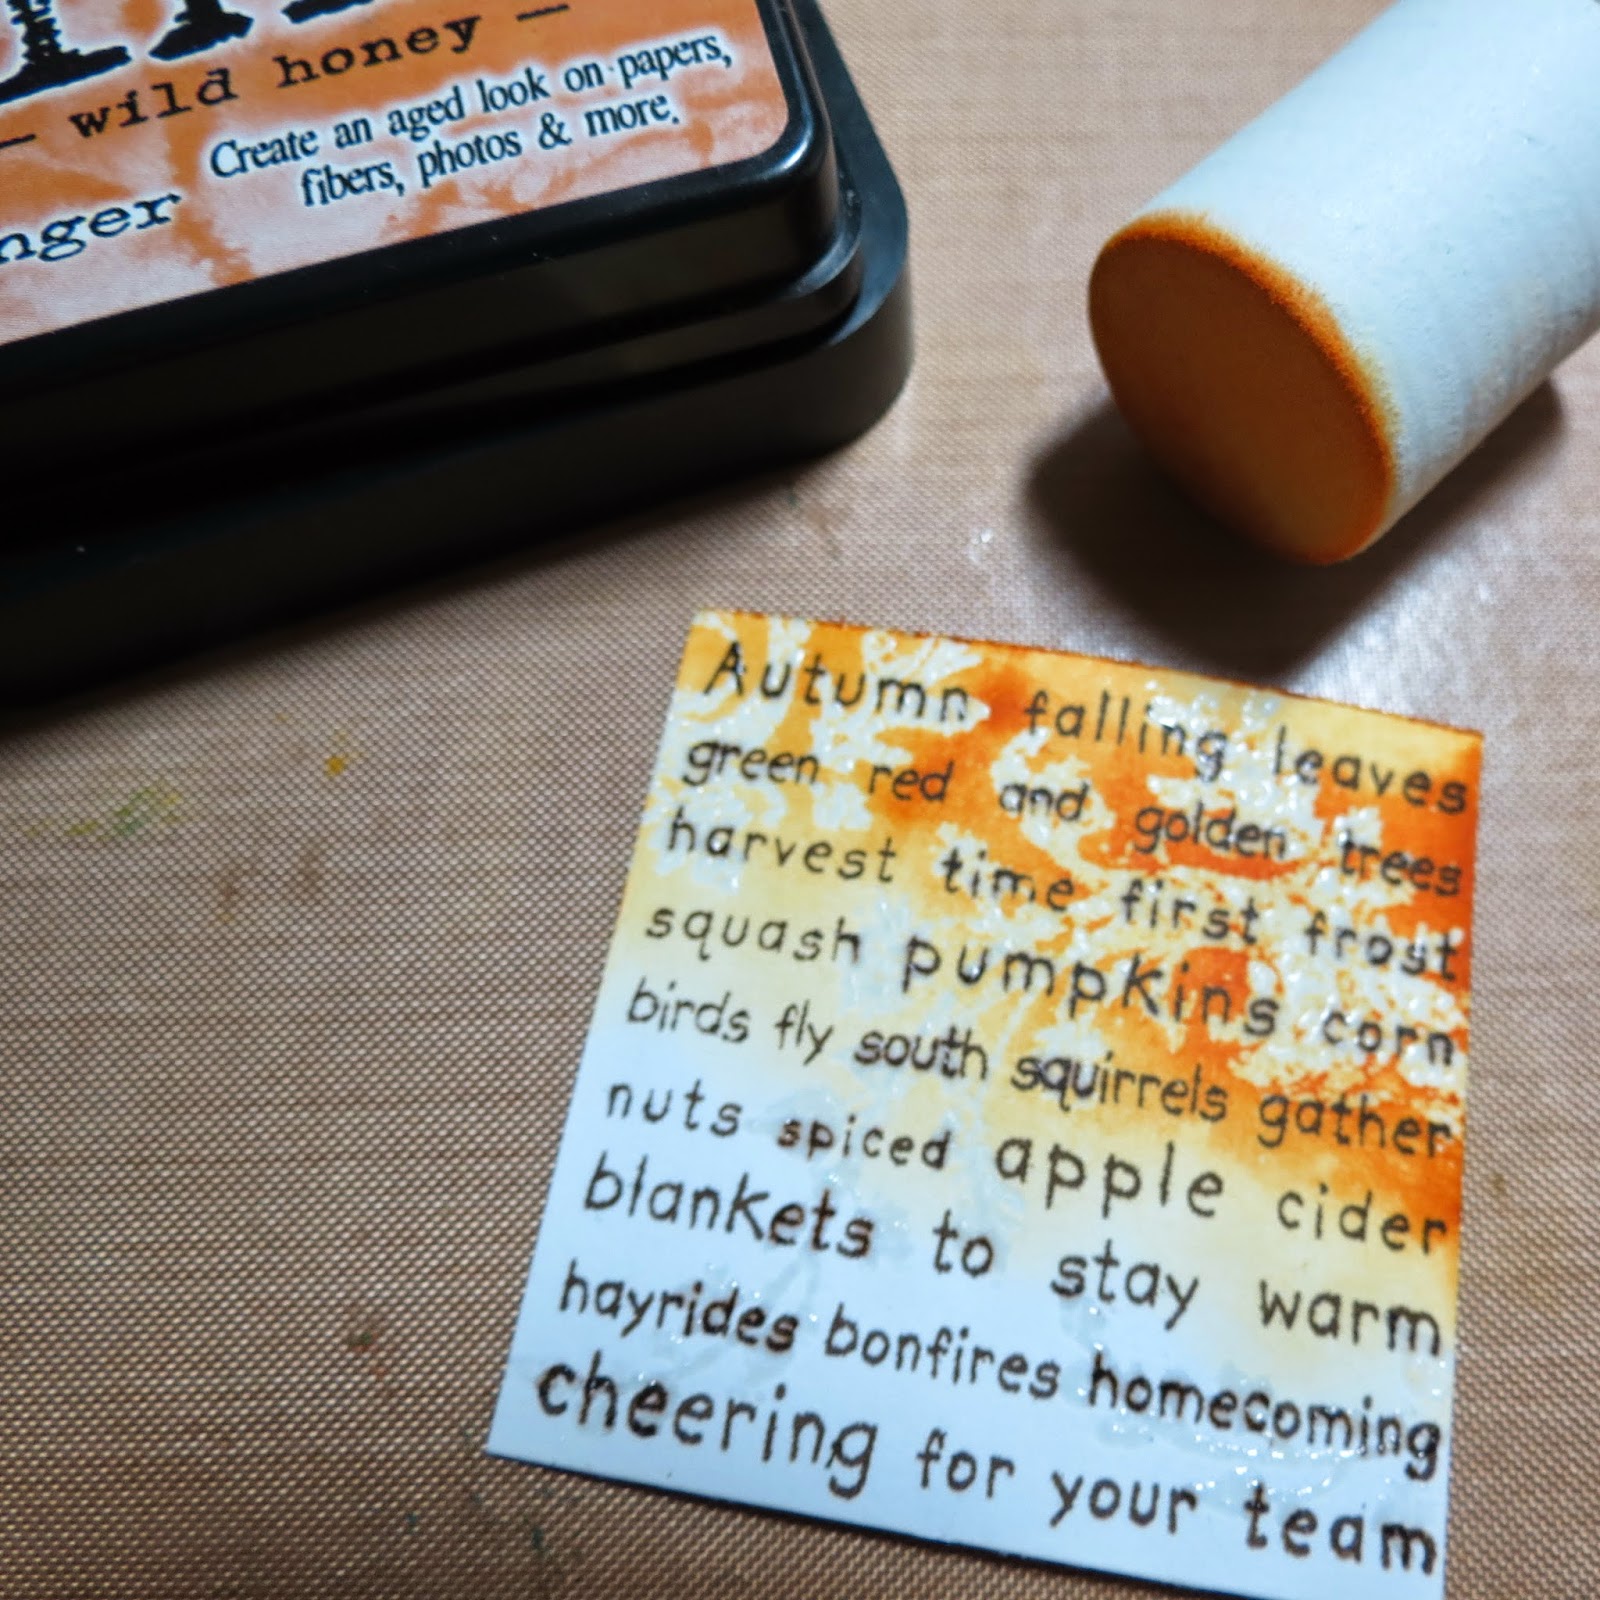 — wild honey —
Create an aged look on papers,
fibers, photos & more.
Autumn falling leaves
green red and golden trees
harvest time first frost
squash pumpkins corn
birds fly south squirrels gather
nuts spiced apple cider
blankets to stay warm
hayrides bonfires homecoming
cheering for your team